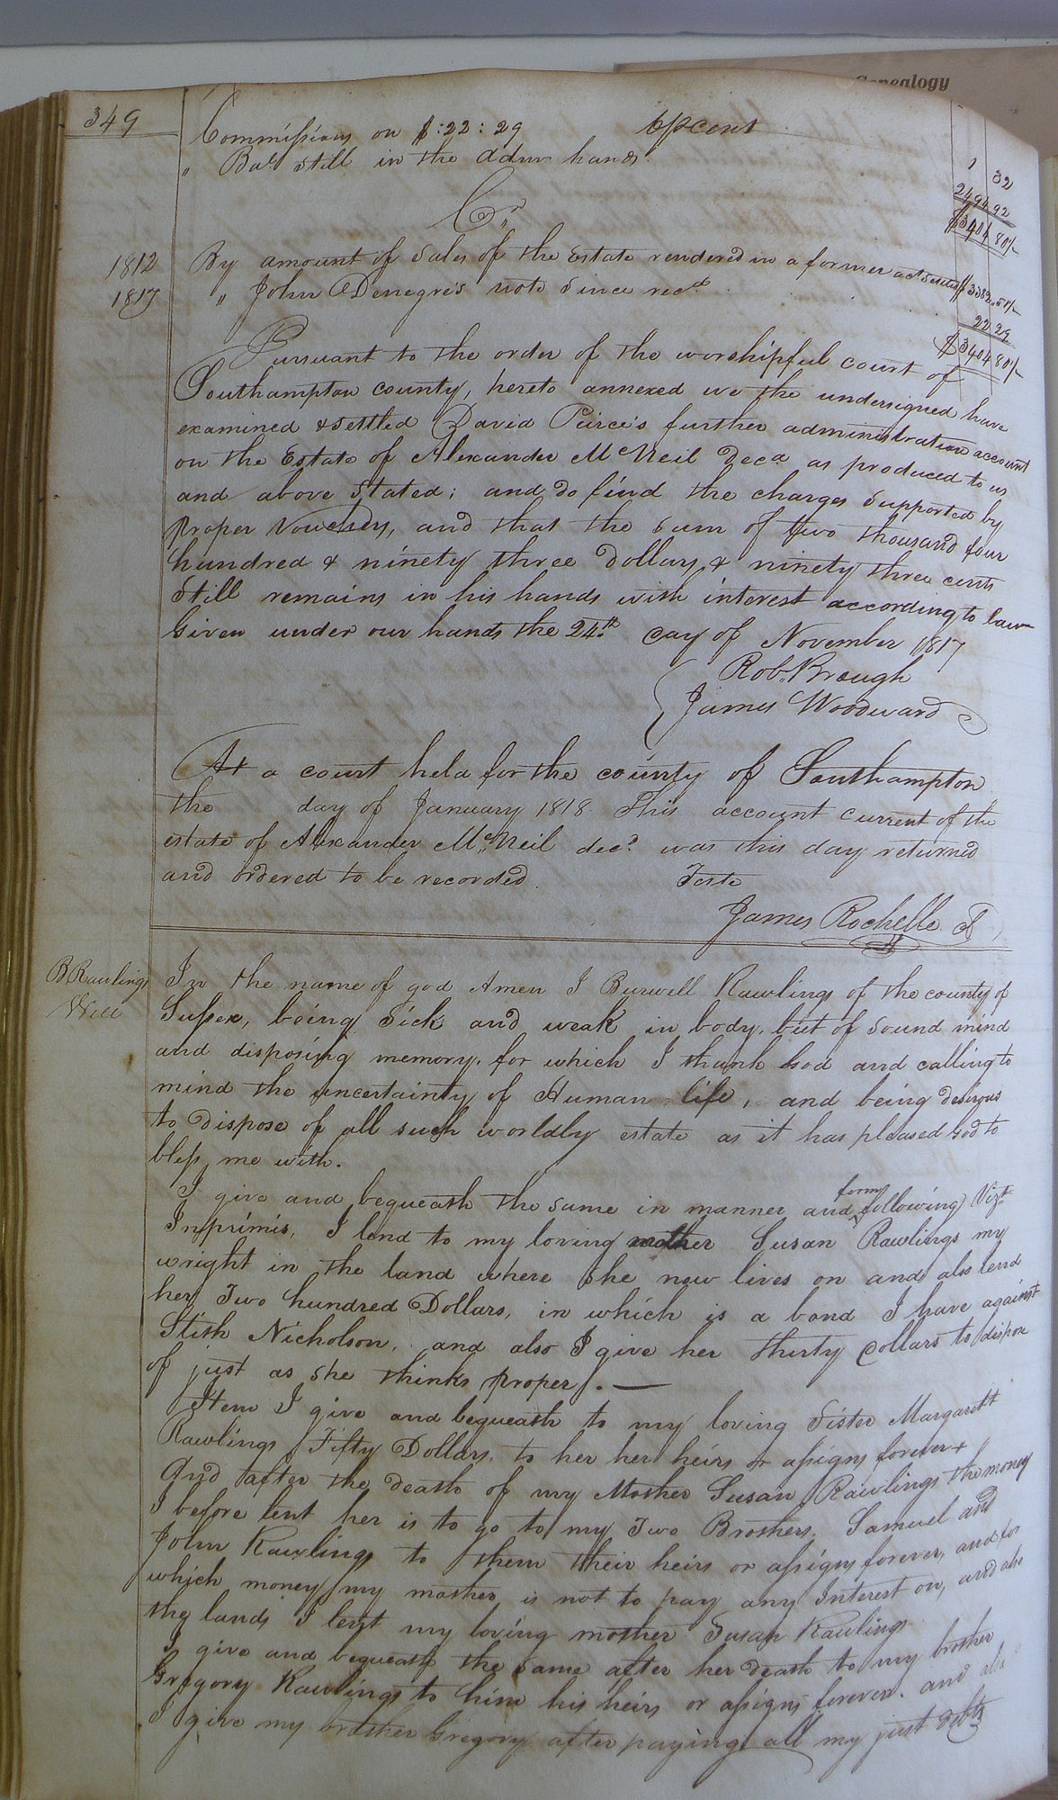 Genealogy
349
Commissions on $:22:29 6 pcent 1 32
" Bal. still in the admr hands 2494 92
$3404 80½
Cr
1812 By amount of Sales of the Estate rendered in a former act settled $3382.51½
1817 " John Denegre's note since recd 22 29
$3404 80½
Pursuant to the order of the worshipful court of
Southampton county, hereto annexed we the undersigned have
examined & settled David Peirce's further administration account
on the Estate of Alexander McNeil decd as produced to us
and above stated; and do find the charges supported by
proper vouchers, and that the sum of two thousand four
hundred & ninety three Dollars & ninety three cents
Still remains in his hands with interest according to law
Given under our hands the 24th day of November 1817
Rob. Brough
James Woodward
At a court held for the county of Southampton
the day of January 1818 This account current of the
estate of Alexander McNeil decd was this day returned
and ordered to be recorded. Teste
James Rochelle
B Rawlings
Will
In the name of god Amen I Burwell Rawlings of the county of
Sussex, being Sick and weak in body, but of sound mind
and disposing memory. for which I thank God and calling to
mind the uncertainty of Human life, and being desirous
to dispose of all such worldly estate as it has pleased God to
bless me with.
I give and bequeath the same in manner and form following Vizt
Inprimis, I lend to my loving mother Susan Rawlings my
wright in the land where she now lives on and also lend
her Two hundred Dollars, in which is a bond I have against
Stith Nicholson, and also I give her thirty Dollars to dispose
of just as she thinks proper. —
Item I give and bequeath to my loving Sister Margarett
Rawlings Fifty Dollars, to her her heirs or assigns forever &
And after the death of my Mother Susan Rawlings the money
I before lent her is to go to my Two Brothers, Samuel and
John Rawlings to them their heirs or assigns forever, and for
which money my mother is not to pay any Interest on, and also
the lands I lent my loving mother Susan Rawlings
I give and bequeath the same after her death to my brother
Gregory Rawlings to him his heirs or assigns forever. and also
I give my brother Gregory after paying all my just debts